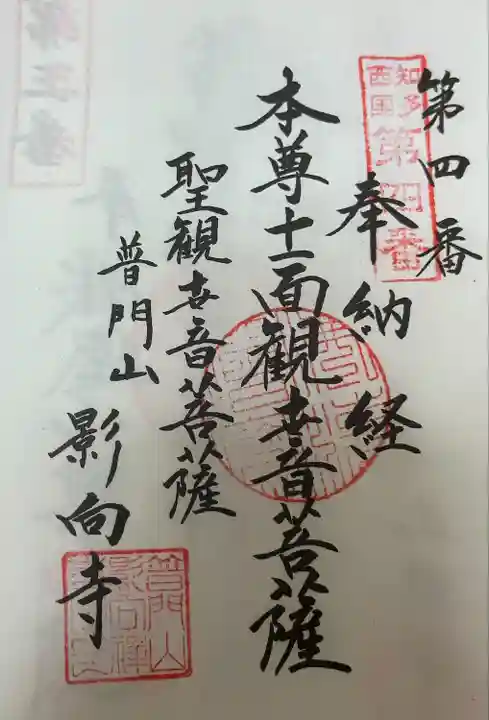 第四番
知多
西国
第四番
奉納経
本尊十一面観世音菩薩
聖観世音菩薩
普門山
影向寺
普門山
影向禅